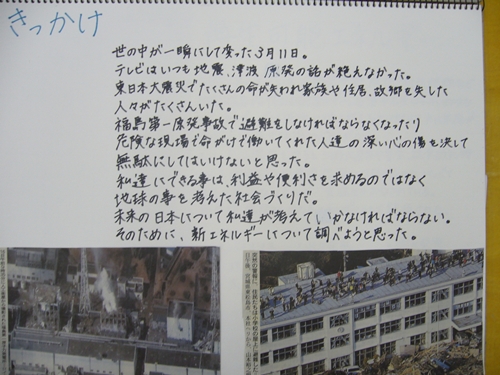 きっかけ
世の中が一瞬にして変った3月11日。
テレビはいつも地震、津波、原発の話が絶えなかった。
東日本大震災でたくさんの命が失われ家族や住居、故郷を失した
人々がたくさんいた。
福島第一原発事故で避難をしなければならなくなったり
危険な現場で命がけで働いてくれた人達の深い心の傷を決して
無駄にしてはいけないと思った。
私達にできる事は、利益や便利さを求めるのではなく
地球の事を考えた社会づくりだ。
未来の日本について私達が考えていかなければならない。
そのために、新エネルギーについて調べようと思った。